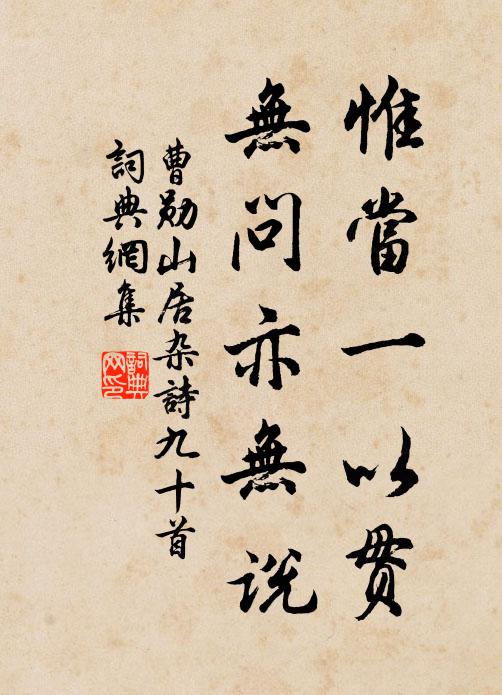 惟當一以貫
無問亦無説
曹勛山居杂詩九十首
詞典網集
詞典網印